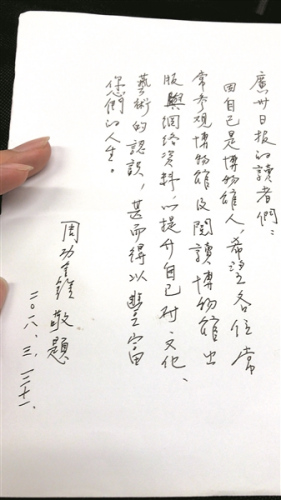 廣州日报的讀者們：
因自己是博物館人，希望各位常
常参观博物館及閱讀博物館出
版與網絡資料，以提升自己对文化、
藝術的認識，甚而得以豐富
您們的人生。
周功鑫 敬題
二〇一八、三、